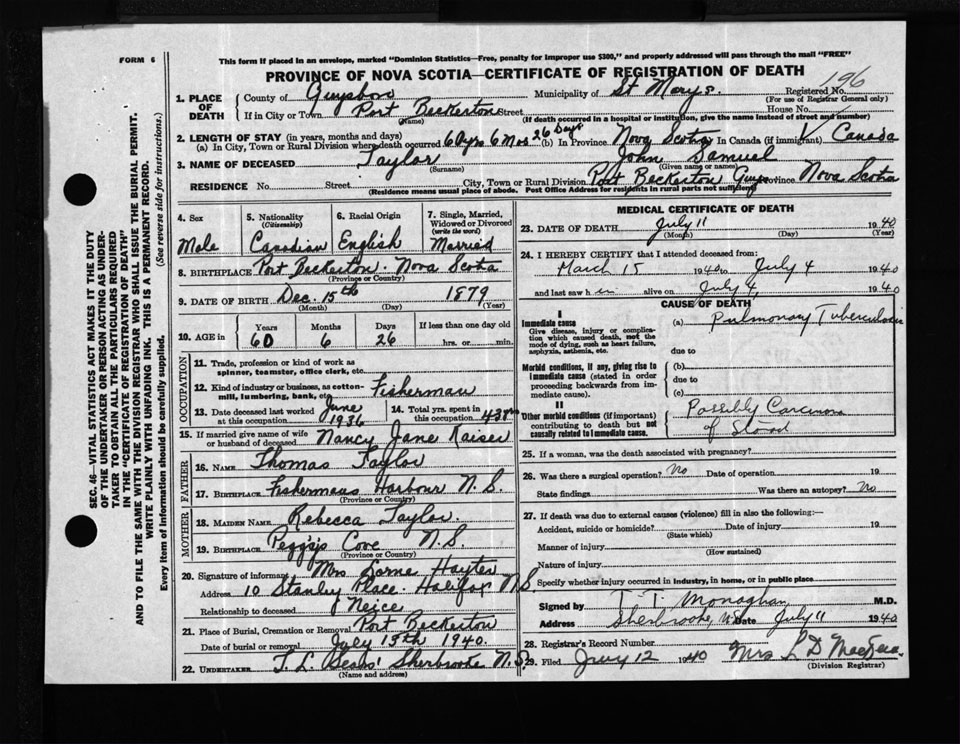 FORM 6
This form if placed in an envelope, marked "Dominion Statistics—Free, penalty for improper use $300," and properly addressed will pass through the mail "FREE"
PROVINCE OF NOVA SCOTIA—CERTIFICATE OF REGISTRATION OF DEATH
196
1. PLACE OF DEATH
County of Guysboro Municipality of St Marys. Registered No.
(For use of Registrar General only)
If in City or Town Port Beckerton Street House No.
(Name) (If death occurred in a hospital or institution, give the name instead of street and number)
2. LENGTH OF STAY (in years, months and days)
(a) In City, Town or Rural Division where death occurred 60 yrs 6 Mos 26 Days (b) In Province Nova Scotia In Canada (if immigrant) Canada
3. NAME OF DECEASED Taylor John Samuel
(Surname) (Given name or names)
RESIDENCE No. Street City, Town or Rural Division Port Beckerton Guys Province Nova Scotia
(Residence means usual place of abode. Post Office Address for residents in rural parts not sufficient)
4. Sex Male
5. Nationality (Citizenship) Canadian
6. Racial Origin English
7. Single, Married, Widowed or Divorced (write the word) Married
8. BIRTHPLACE Port Beckerton. Nova Scotia
(Province or Country)
9. DATE OF BIRTH Dec. 15th 1879
(Month) (Day) (Year)
10. AGE in Years Months Days If less than one day old
60 6 26 hrs. or min.
OCCUPATION
11. Trade, profession or kind of work as spinner, teamster, office clerk, etc.
12. Kind of industry or business, as cotton-mill, lumbering, bank, etc. Fisherman
13. Date deceased last worked at this occupation June 1936
14. Total yrs. spent in this occupation 43 yrs
15. If married give name of wife or husband of deceased Nancy Jane Kaiser
FATHER
16. NAME Thomas Taylor
17. BIRTHPLACE Fishermans Harbour N.S.
(Province or Country)
MOTHER
18. MAIDEN NAME Rebecca Taylor.
19. BIRTHPLACE Peggys Cove N.S.
(Province or Country)
20. Signature of informant Mrs Lorne Hayter
Address 10 Stanley Place. Halifax N.S.
Relationship to deceased Neice
21. Place of Burial, Cremation or Removal Port Beckerton
Date of burial or removal July 13th 1940.
22. UNDERTAKER Sherbrooke N.S.
(Name and address)
MEDICAL CERTIFICATE OF DEATH
23. DATE OF DEATH July 11 1940
(Month) (Day) (Year)
24. I HEREBY CERTIFY that I attended deceased from:
March 15 1940 to July 4 1940
and last saw h im alive on July 4, 1940
CAUSE OF DEATH
I
Immediate cause
Give disease, injury or complication which caused death, not the mode of dying, such as heart failure, asphyxia, asthenia, etc.
(a) Pulmonary Tuberculosis
due to
Morbid conditions, if any, giving rise to immediate cause (stated in order proceeding backwards from immediate cause).
(b)
due to
(c)
II
Other morbid conditions (if important) contributing to death but not causally related to immediate cause.
Possibly Carcinoma
of
25. If a woman, was the death associated with pregnancy?
26. Was there a surgical operation? No Date of operation 19
State findings Was there an autopsy? No
27. If death was due to external causes (violence) fill in also the following:—
Accident, suicide or homicide? Date of injury 19
(State which)
Manner of injury
(How sustained)
Nature of injury
Specify whether injury occurred in industry, in home, or in public place
Signed by T. T. Monaghan M.D.
Address Sherbrooke, N.S. Date July 11 1940
28. Registrar's Record Number
29. Filed July 12 1940 Mrs L D
(Division Registrar)
SEC. 46—VITAL STATISTICS ACT MAKES IT THE DUTY
OF THE UNDERTAKER OR PERSON ACTING AS UNDER-
TAKER TO OBTAIN ALL THE PARTICULARS REQUIRED
IN THE "CERTIFICATE OF REGISTRATION OF DEATH"
AND TO FILE THE SAME WITH THE DIVISION REGISTRAR WHO SHALL ISSUE THE BURIAL PERMIT.
WRITE PLAINLY WITH UNFADING INK. THIS IS A PERMANENT RECORD.
Every item of information should be carefully supplied. (See reverse side for instructions.)